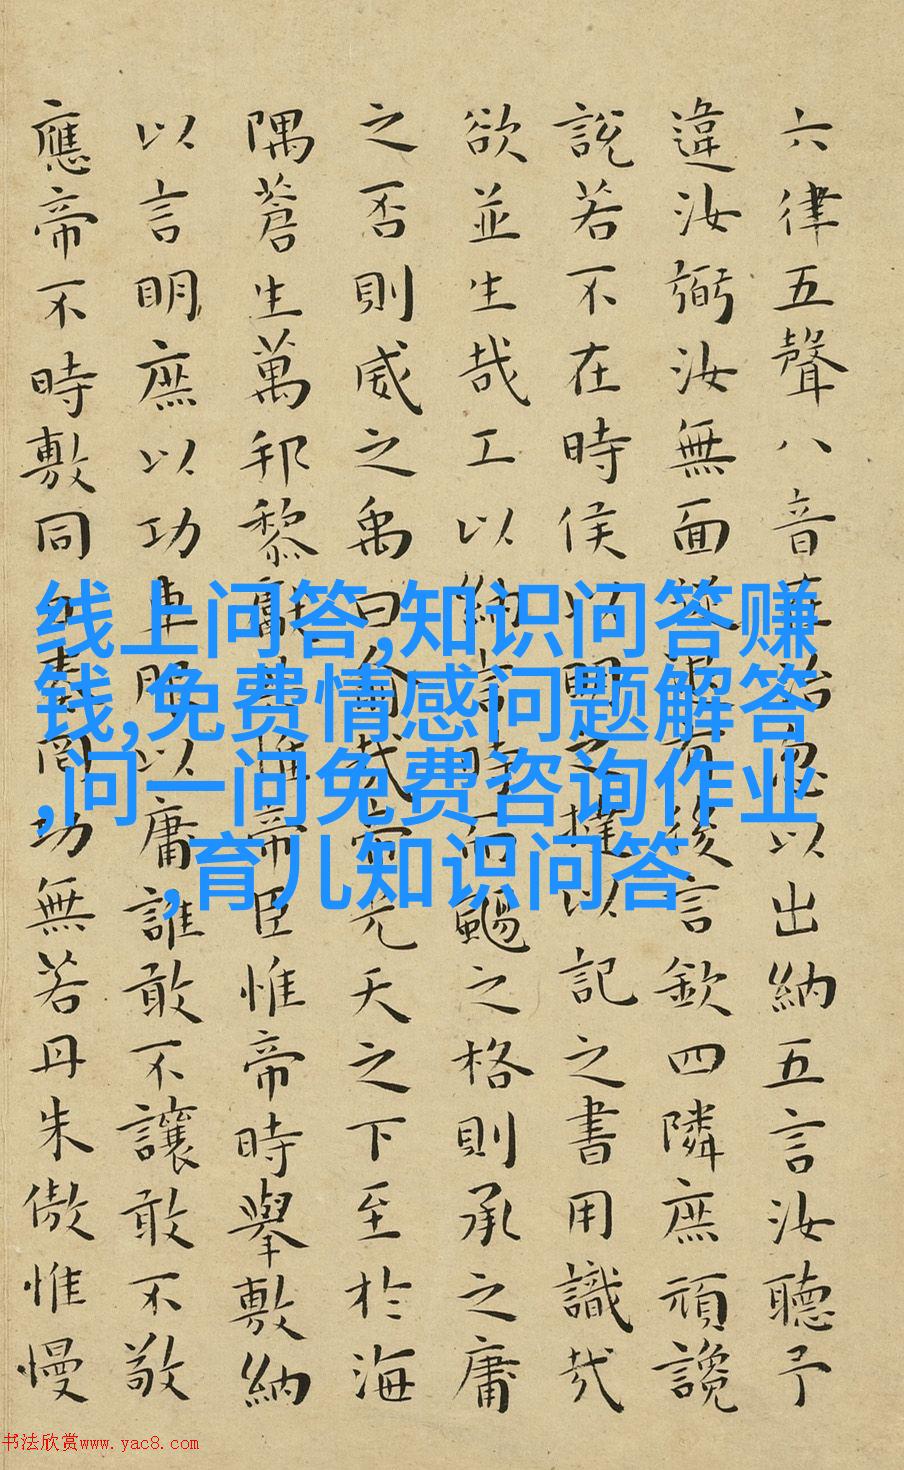 六律五聲八音在治忽以出納五言汝聽予
違汝弼汝無面從退有後言欽四隣庶頑讒
說若不在時侯以明之撻以記之書用識哉
欲並生哉工以納言時而颺之格則承之庸
之否則威之禹曰俞哉帝光天之下至於海
隅蒼生萬邦黎獻共惟帝臣惟帝時舉敷納
以言明庶以功車服以庸誰敢不讓敢不敬
應帝不時敷同日奏罔功無若丹朱傲惟慢
线上问答,知识问答赚
钱,免费情感问题解答
,问一问免费咨询作业
,育儿知识问答
书法欣赏www.yac8.com